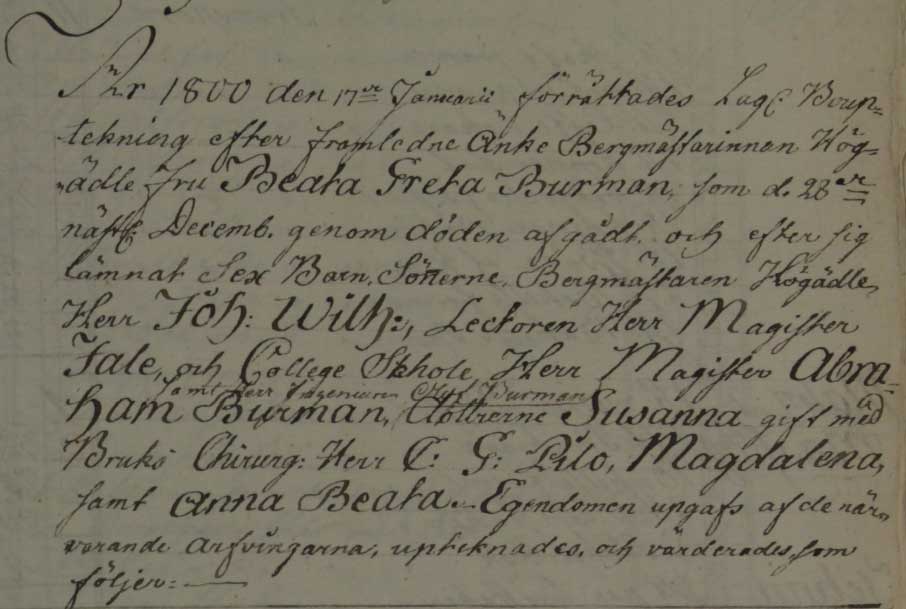 År 1800 den 17de Januarii förrättades Lagl. Boup-
tekning efter framledne Änke Bergmästarinnan Hög-
ädle Fru Beata Greta Burman, som d. 28de
nästl. Decemb. genom döden afgådt. och efter sig
lämnat Sex Barn, Sönerne, Bergmästaren Högädle
Herr Joh: Wilh:, Lectoren Herr Magister
Fale, och College Skhole Herr Magister Abra-
samt Herr Ingenieuren Olof Burman
ham Burman, Döttrerne Susanna gift med
Bruks Chirurg: Herr C: G: Pilo, Magdalena,
samt Anna Beata. Egendomen upgafs af de när-
varande arfvingarna, upteknades, och värderades, som
följer: